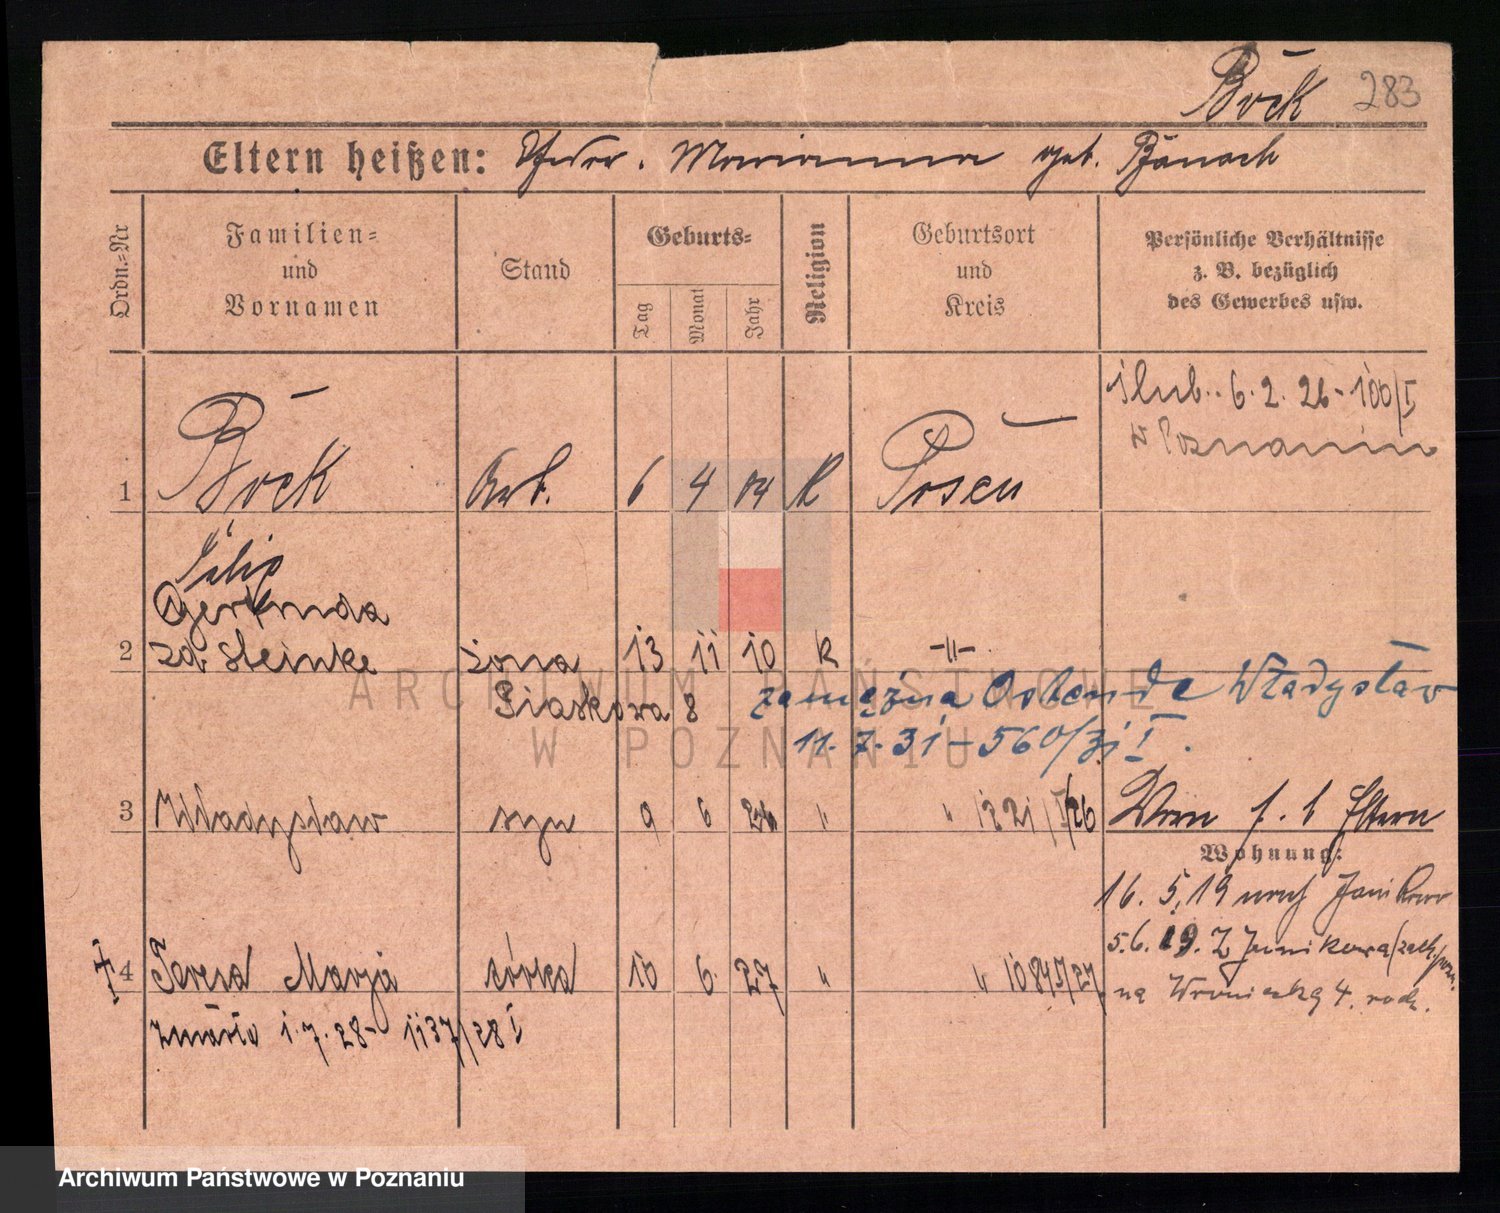 Bock 283
Eltern heißen: Theodor. Marianna geb. Banach
Ordn.-Nr
Familien-
und
Vornamen
Stand
Geburts-
Tag
Monat
Jahr
Religion
Geburtsort
und
Kreis
Persönliche Verhältnisse
z. B. bezüglich
des Gewerbes usw.
ślub. 6. 2. 26 - 100/I
w Poznaniu
1 Bock Arb. 6 4 04 k Posen
Filip
Gertruda
2 zd Steinke żona 13 11 10 k -||-
Piaskowa 8 zamężna Ostende Władysław
11. 7. 31 - 560/31 I.
3 Władysław syn 9 6 26 " " 1221/I/26 Eltern
Wohnung:
16. 5. 19 nach Janikowo
5. 6. 19. Z Junikowa
4 Teresa Marja córka 10 6. 27 " " 1084/I/27 na Wroniecką 4. rodz.
zmarła 1. 7. 28 - 1137/28 I
ARCHIWUM PAŃSTWOWE
W POZNANIU
Archiwum Państwowe w Poznaniu